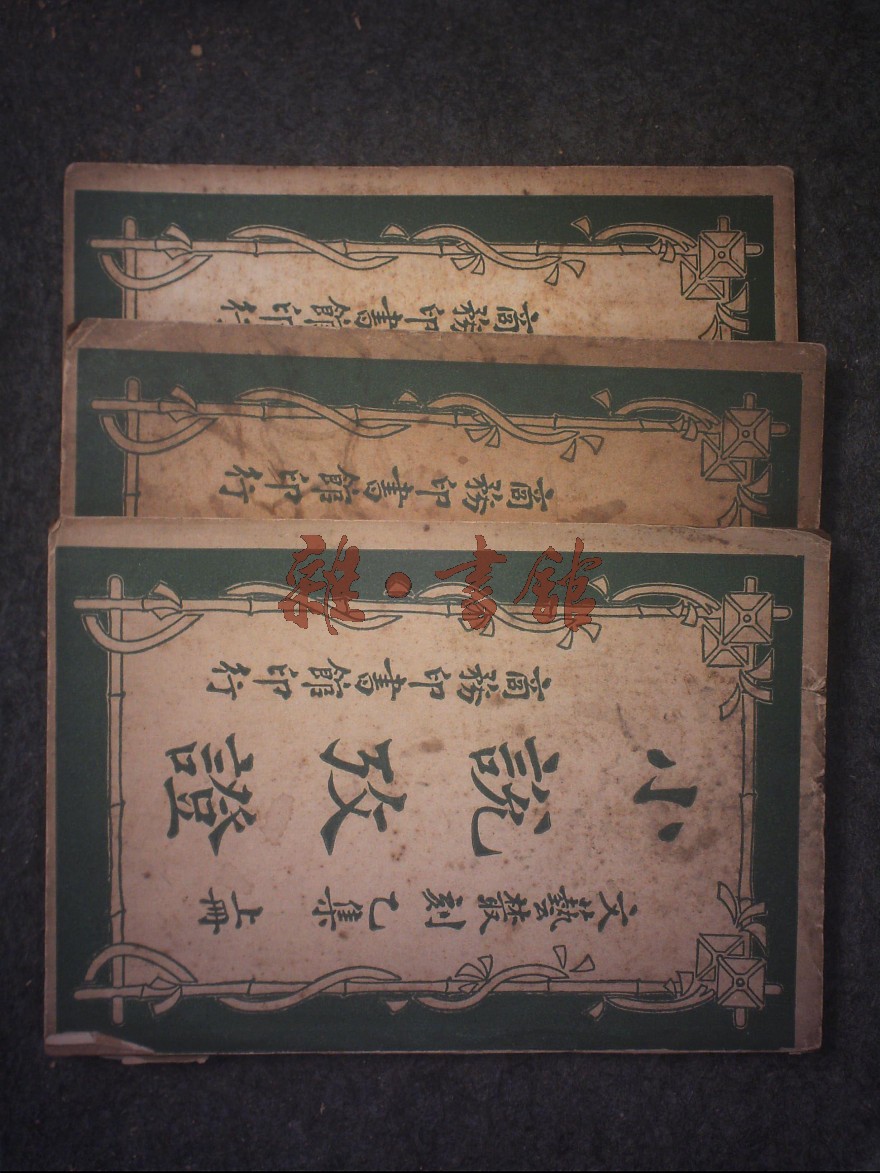 商務印書館印行
商務印書館印行
雜·書館
商務印書館印行
小說攷證
文藝叢刻乙集 上冊